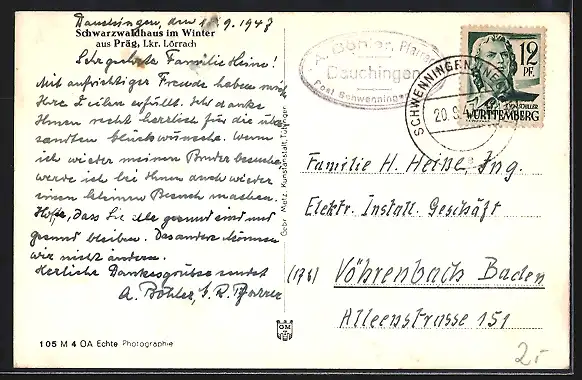 Dauchingen, den 18.9.1947
Schwarzwaldhaus im Winter
aus Präg, Lkr. Lörrach
Sehr geehrte Familie Heine!
Mit aufrichtiger Freude haben mich
Ihre Zeilen erfüllt. Ich danke
Ihnen recht herzlich für die über-
sandten Glückwünsche. Wenn
ich wieder meinen Bruder besuche,
werde ich bei Ihnen auch wieder
einen kleinen Besuch machen.
Hoffe, dass Sie alle gesund sind und
gesund bleiben. Das andere können
wir nicht ändern.
Herzliche Dankesgrüsse sendet
A. Böhler, Pfarrer
105 M 4 OA Echte Photographie
Gebr. Metz, Kunstanstalt, Tübingen
GM
A. Böhler, Pfarrer
Dauchingen
Post Schwenningen
SCHWENNINGEN
20.9.47
12
PF.
SCHILLER
WÜRTTEMBERG
Familie H. Heine, Ing.
Elektr. Install. Geschäft
(17b) Vöhrenbach Baden
Alleenstrasse 151
2.-